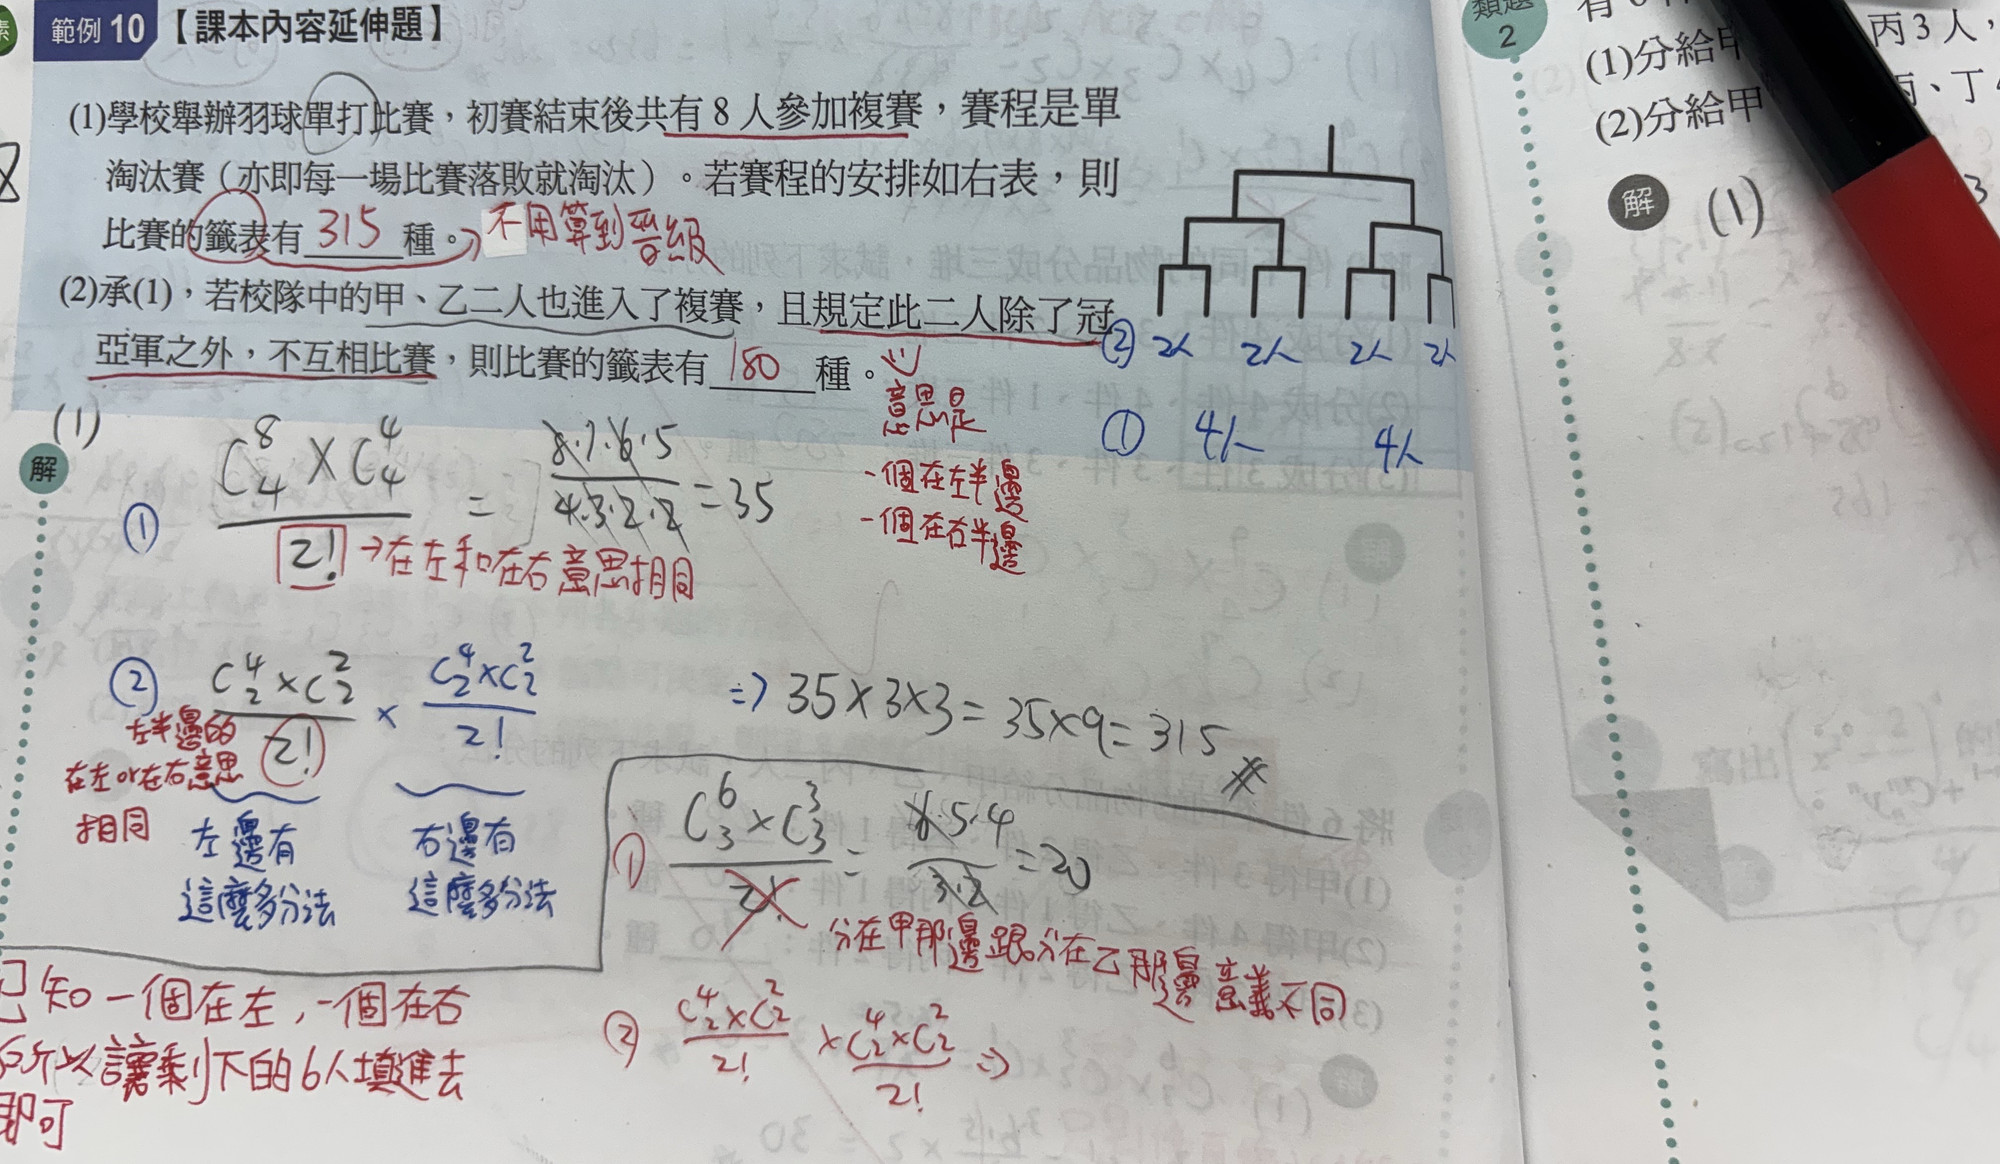 範例 10 【課本內容延伸題】
(1)學校舉辦羽球單打比賽，初賽結束後共有 8 人參加複賽，賽程是單
淘汰賽（亦即每一場比賽落敗就淘汰）。若賽程的安排如右表，則
比賽的籤表有 315 種。 不用算到晉級
(2)承(1)，若校隊中的甲、乙二人也進入了複賽，且規定此二人除了冠
亞軍之外，不互相比賽，則比賽的籤表有 180 種。
意思是
一個在左半邊
一個在右半邊
② 2人 2人 2人 2人
① 4人 4人
解 (1)
① C⁸₄ × C⁴₄ / 2! = 8·7·6·5 / 4·3·2·2 = 35
→在左和在右意思相同
② C⁴₂ × C²₂ / 2! × C⁴₂ × C²₂ / 2! ⇒ 35×3×3 = 35×9 = 315
左半邊的
在左or在右意思
相同
左邊有
這麼多分法
右邊有
這麼多分法
① C⁶₃ × C³₃ / 2! = 6·5·4 / 3·2 = 20
分在甲那邊跟分在乙那邊意義不同
② C⁴₂ × C²₂ / 2! × C⁴₂ × C²₂ / 2! ⇒
已知一個在左，一個在右
所以讓剩下的6人填進去
即可
類題
2
(1)分給甲
丙 3 人，
(2)分給甲
丙、丁
解 (1)
3